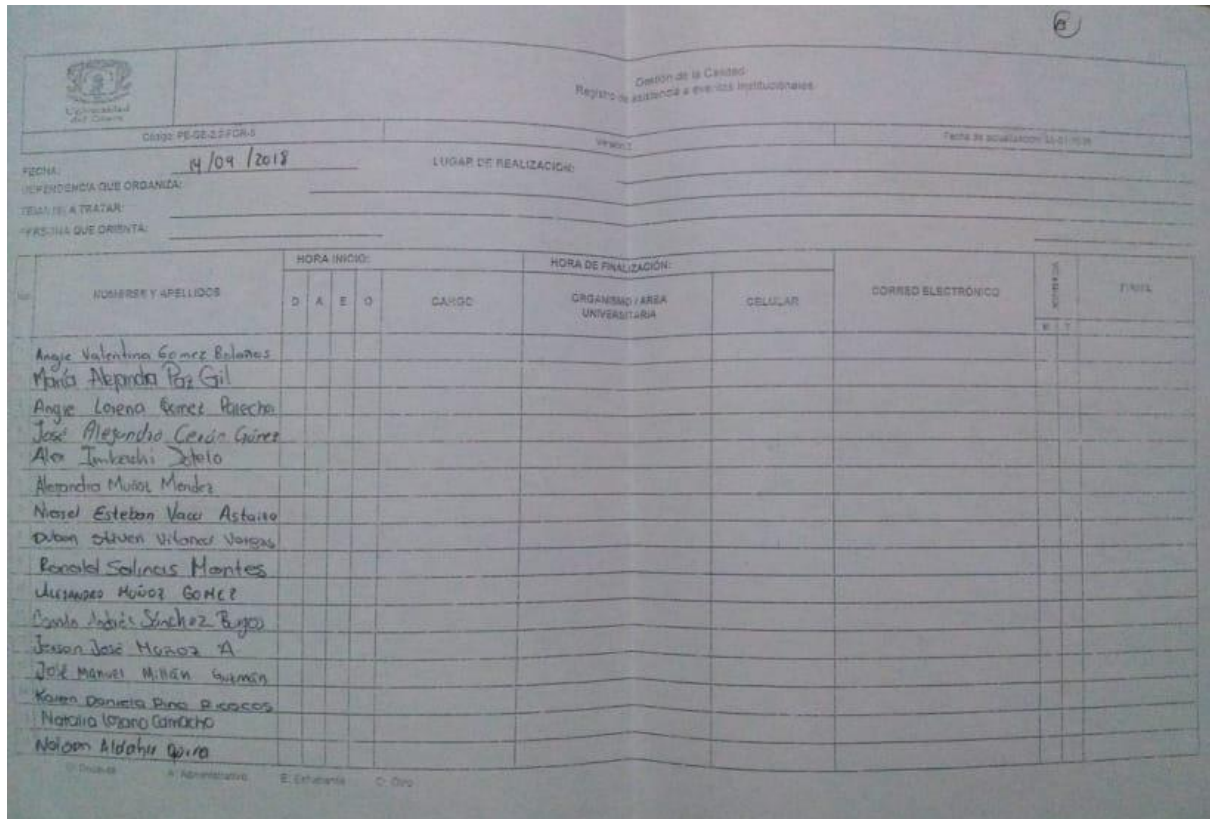 Universidad
del Cauca
Gestión de la Calidad
Registro de asistencia a eventos institucionales
Código: PE-GE-2.2-FOR-5
Fecha de actualización:
FECHA: 14/09/2018 LUGAR DE REALIZACIÓN:
DEPENDENCIA QUE ORGANIZA:
TEMA(S) A TRATAR:
PERSONA QUE ORIENTA:
HORA INICIO: HORA DE FINALIZACIÓN:
NOMBRES Y APELLIDOS D A E O CARGO ORGANISMO / AREA UNIVERSITARIA CELULAR CORREO ELECTRÓNICO FIRMA
Angie Valentina Gomez Bolaños
María Alejandra Paz Gil
Angie Lorena Gomez
José Alejandro Cerón Gómez
Alex Imbachi
Alejandro Muñoz Mendez
Esteban
Vargas
Ronald Salinas Montes
Alejandro MUÑOZ GOMEZ
Camilo Andrés Sánchez
José Muñoz A
José Manuel Millán Guzmán
Karen Daniela Pino
Natalia Lozano Camacho
Aldahir
A: Administrativo E: Estudiante O: Otro